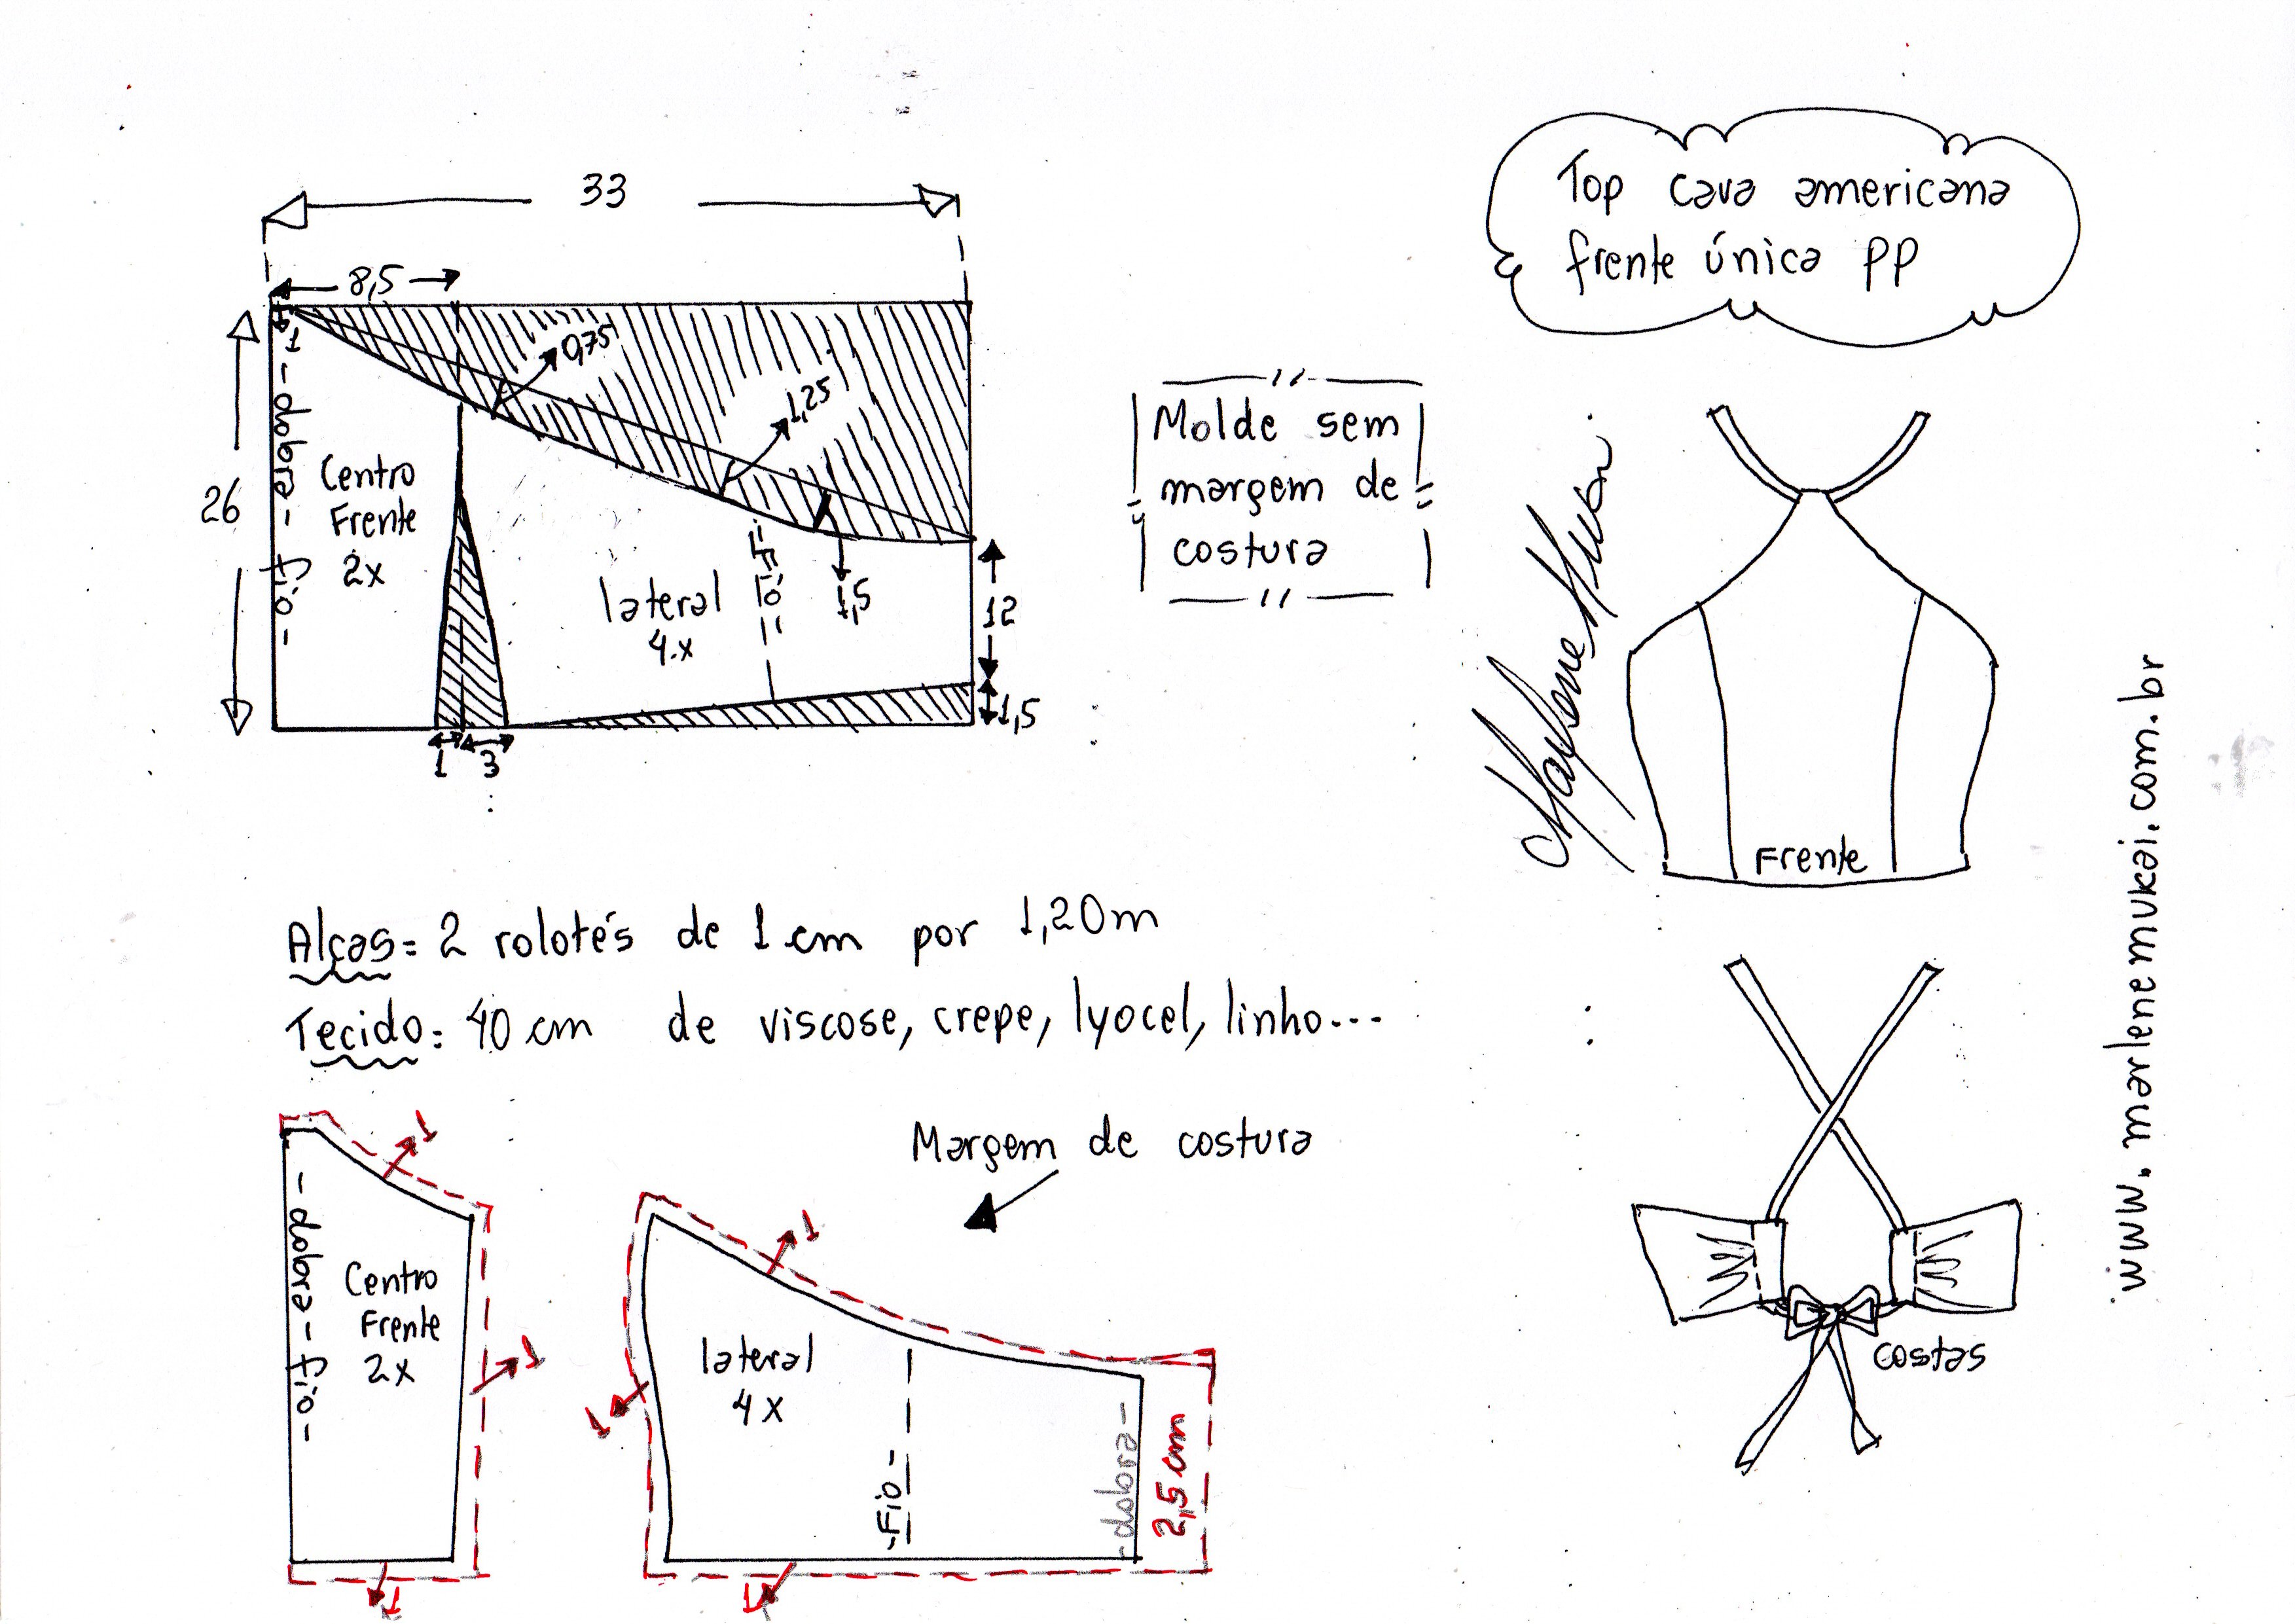 Top cava americana
frente única PP
33
8,5
1
0,75
1,25
- dobra - fio -
26
Centro
Frente
2x
lateral
4x
- fio -
1,5
12
1,5
1
3
Molde sem
margem de
costura
Marlene Mukai
www.marlenemukai.com.br
Frente
Alças= 2 rolotés de 1 cm por 1,20m
Tecido: 40 cm de viscose, crepe, lyocel, linho...
Margem de costura
1
- dobra - fio -
Centro
Frente
2x
1
1
1
lateral
4x
1
- Fio -
- dobra -
2,5 cm
1
costas